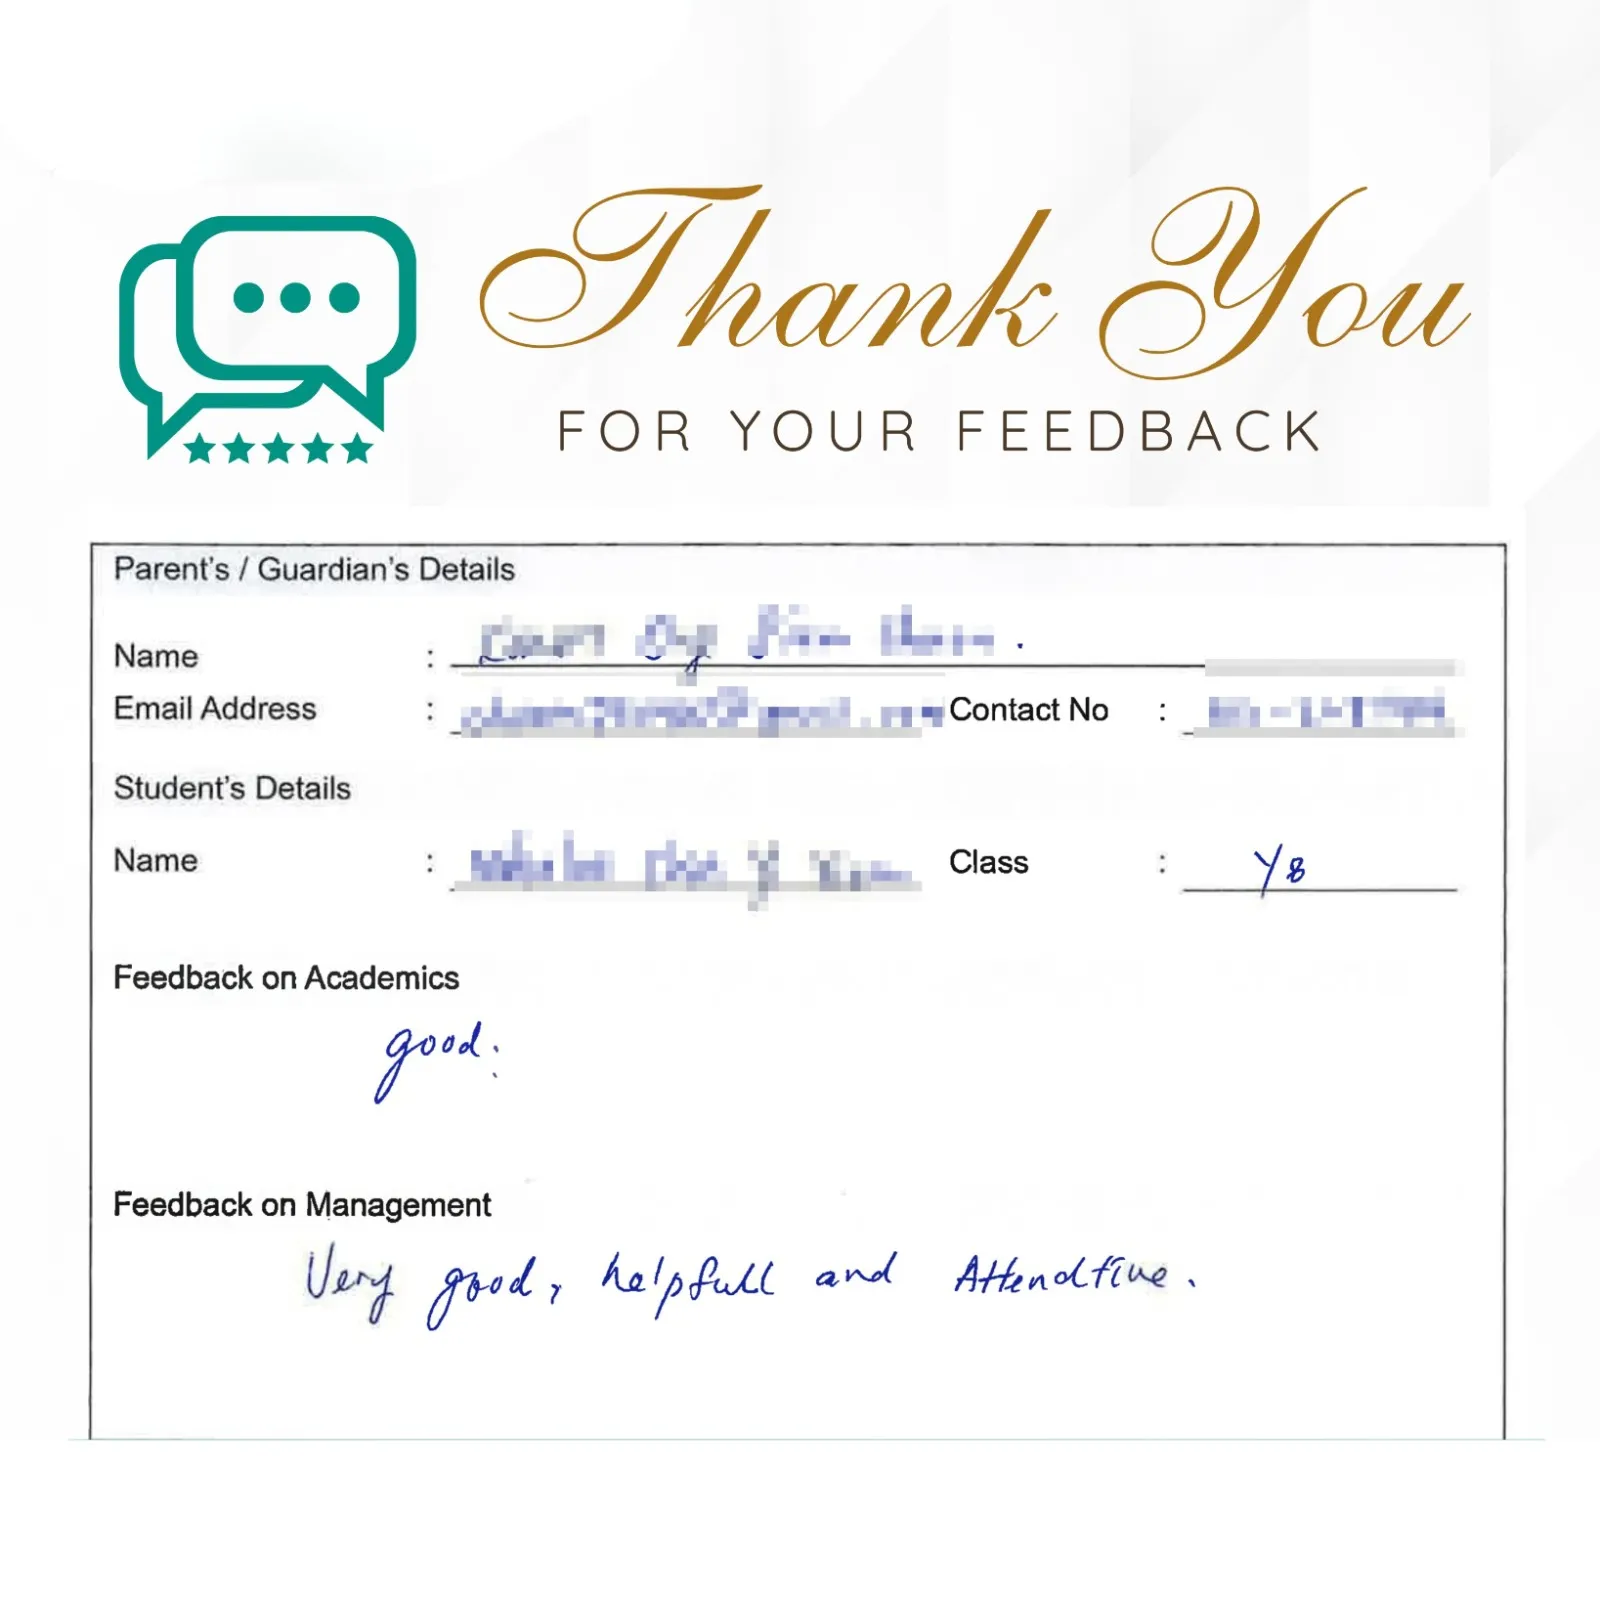 Thank You
FOR YOUR FEEDBACK
Parent's / Guardian's Details
Name :
Email Address : Contact No :
Student's Details
Name : Class : Y8
Feedback on Academics
good.
Feedback on Management
Very good, helpfull and Attendtive.